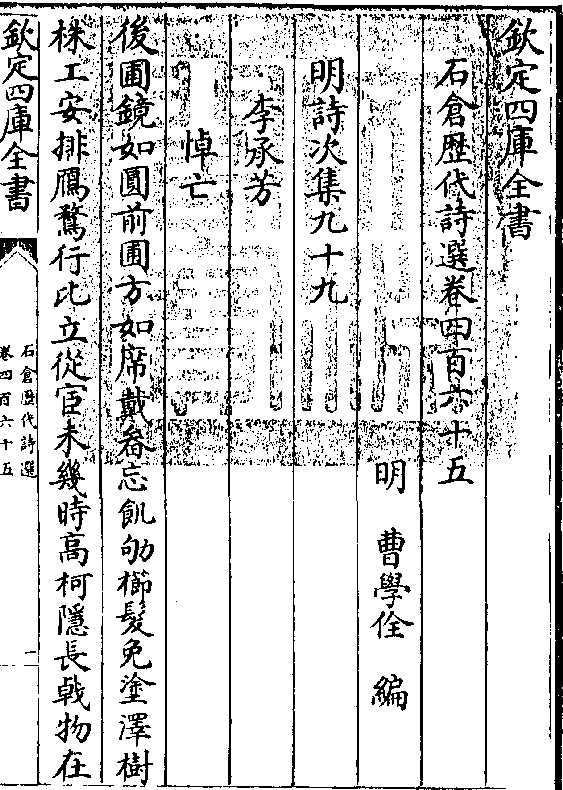 欽定四庫全書
石倉歴代詩選巻四百六十五
明 曹學佺 編
明詩次集九十九
李承芳
悼亡
後圃鏡如圓前圃方如席戴畚忘飢劬櫛髮免塗澤樹
株工安排鴈鶩行比立從宦未幾時高柯隱長㦸物在
欽定四庫全書
石倉歴代詩選
巻四百六十五
一